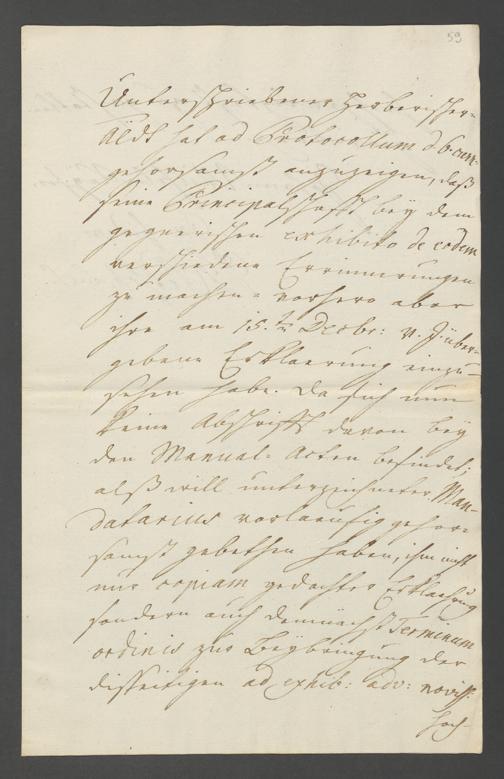 59
Unterschriebener Herberischer-
hat ad Protocollum d 6. curr.
gehorsamst anzuzeigen, daß
seine Principalschafft bey dem
gegnerischen exhibito de eodem
verschiedene Errinnerungen
zu machen - vorhero aber
ihre am 15.ten Decbr: v. J. über-
gebene Erklaerung einzu-
sehen habe. Da sich nun
keine Abschrifft davon bey
den Manual-Acten befindet;
alß will unterzeichneter Man-
datarius vorlaeufig gehor-
samst gebethen haben, ihm nicht
nur copiam gedachter Erklaerung
sondern auch demnächst Terminum
ordinis zur Beybringung der
disseitigen ad exhib: adv: noviss: